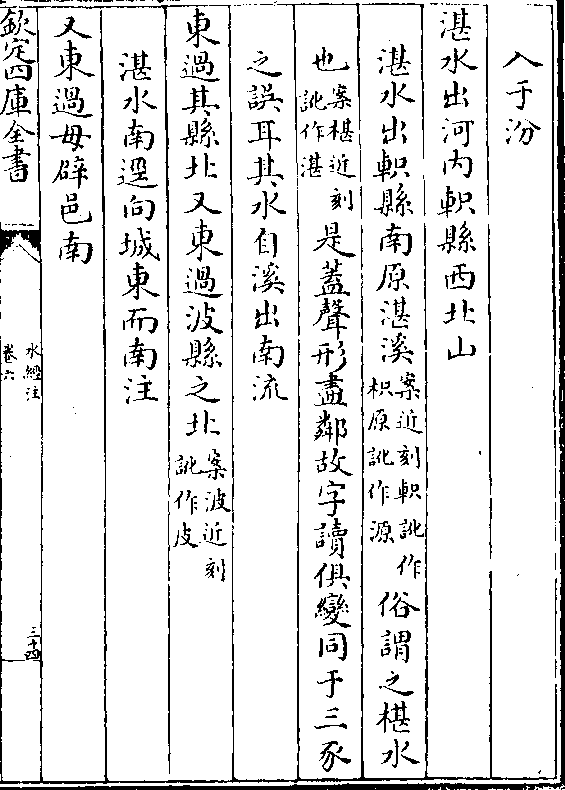 入于汾
湛水出河内軹縣西北山
湛水出軹縣南原湛溪案近刻軹訛作枳原訛作源俗謂之椹水
也案椹近刻訛作湛是蓋聲形盡鄰故字讀俱變同于三豕
之誤耳其水自溪出南流
東過其縣北又東過波縣之北案波近刻訛作皮
湛水南逕向城東而南注
又東過毋辟邑南
欽定四庫全書
水經注
卷六
三十四